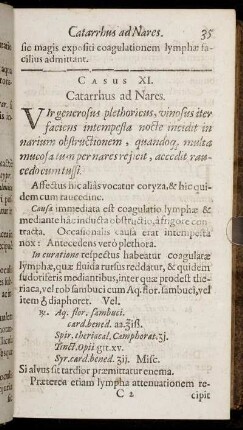 Catarrhus ad Nares. 35
sic magis expositi coagulationem lymphæ fa-
cilius admittant.
CASUS XI.
Catarrhus ad Nares.
VIr generosus plethoricus, vinosus iter
faciens intempesta nocte incidit in
narium obstructionem, quandoq; multa
mucosa tum per nares rejicit, accedit rau-
cedo cum tussi.
Affectus hic aliàs vocatur coryza, & hic qui-
dem cum raucedine.
Causa immediata est coagulatio lymphæ &
mediante hac inducta obstructio, à frigore con-
tracta. Occasionalis causa erat intempesta
nox: Antecedens verò plethora.
In curatione respectus habeatur coagulatæ
lymphæ, quæ fluida rursus reddatur, & quidem
sudoriferis mediantibus, inter quæ prodest the-
riaca, vel rob sambuci cum Aq. flor. sambuci, vel
item ☿ diaphoret. Vel.
℞. Aq. flor. sambuci.
card. bened. aa. ℥iß.
Spir. theriacal. Camphorat. ʒi.
Tinct. Opii gtt. xv.
Syr. card. bened. ℥ij. Misc.
Si alvus sit tardior præmittatur enema.
Præterea etiam lympha attenuationem re-
C 2 cipit